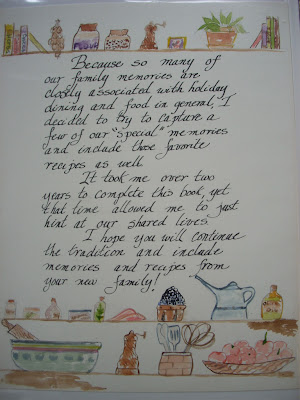 Because so many of
our family memories are
closely associated with holiday
dining and food in general, I
decided to try to capture a
few of our "special" memories
and include those favorite
recipes as well
It took me over two
years to complete this book, yet
that time allowed me to just
hint at our shared lives.
I hope you will continue
the tradition and include
memories and recipes from
your new family!